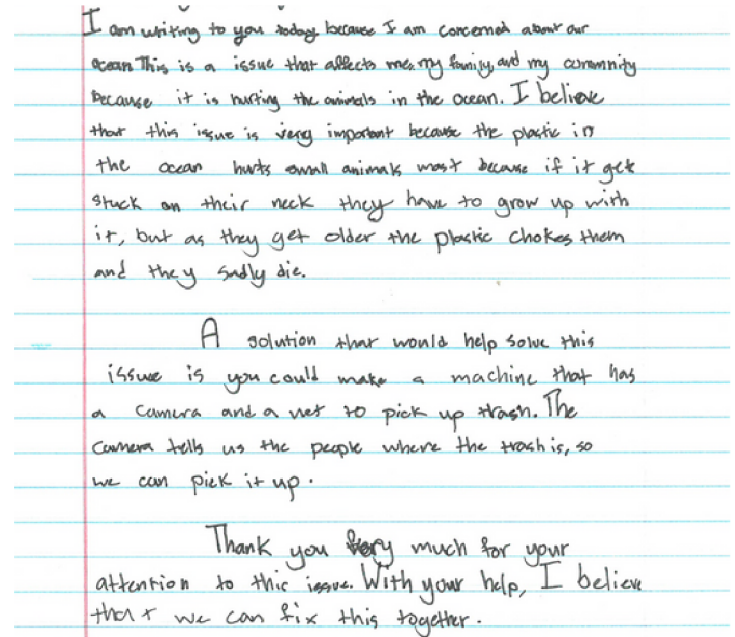 I am writing to you today because I am concerned about our
ocean This is a issue that affects me, my family, and my community
because it is hurting the animals in the ocean. I believe
that this issue is very important because the plastic in
the ocean hurts small animals most because if it get
stuck on their neck they have to grow up with
it, but as they get older the plastic chokes them
and they sadly die.
A solution that would help solve this
issue is you could make a machine that has
a camera and a net to pick up trash. The
camera tells us the people where the trash is, so
we can pick it up.
Thank you very much for your
attention to this issue. With your help, I believe
that we can fix this together.